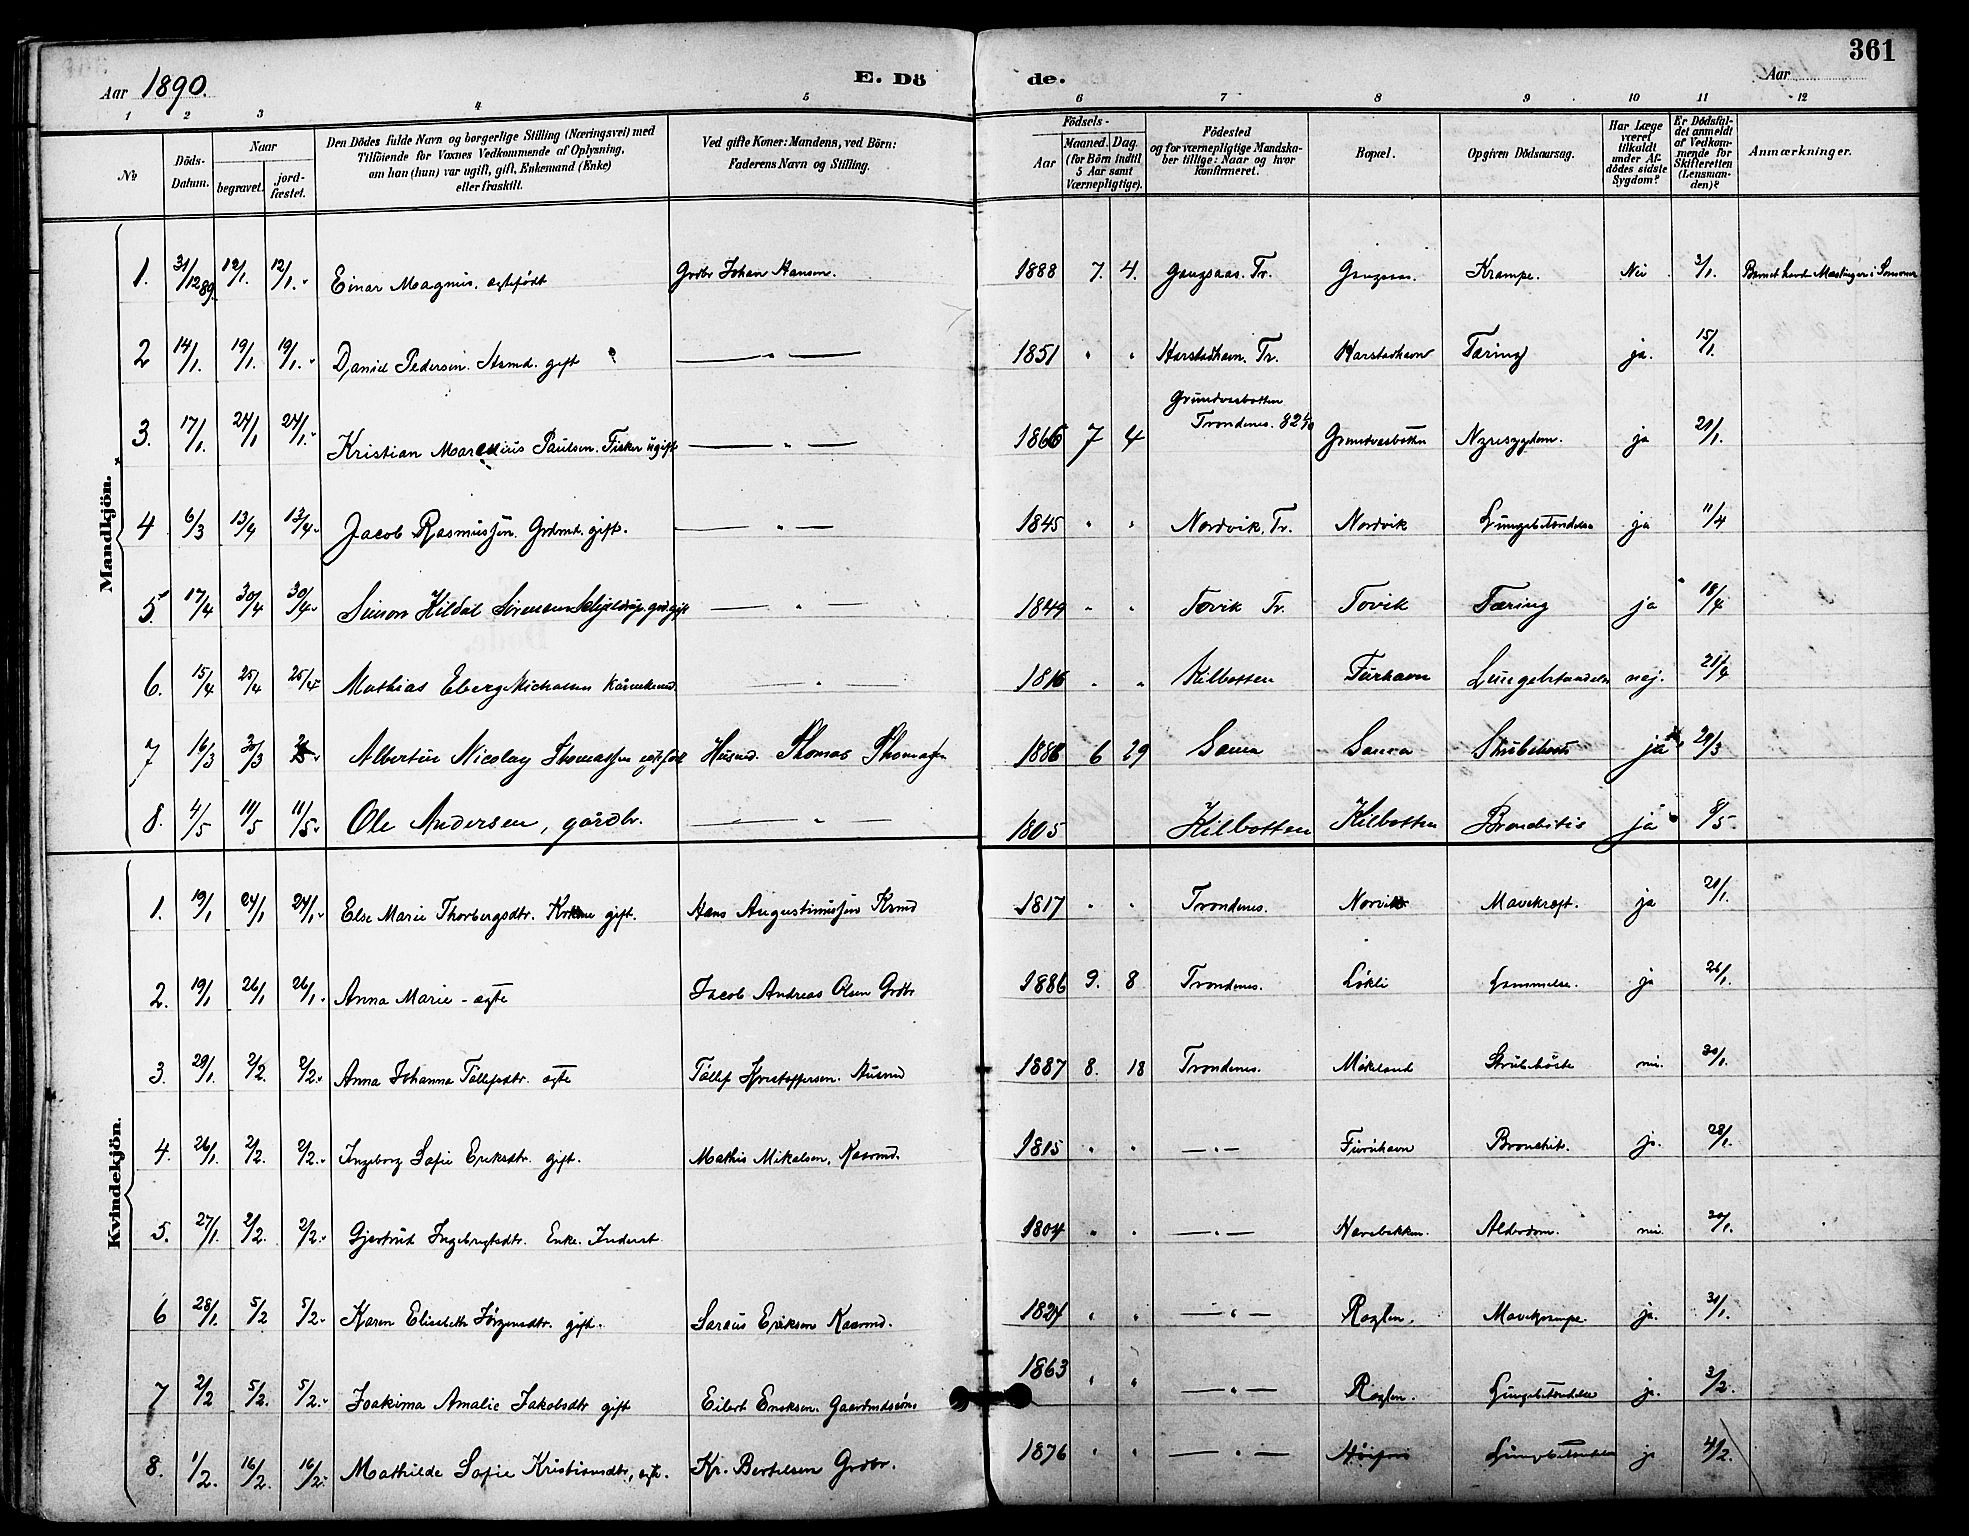 361
Aar 1890. E. Dö de. Aar
1 2 3 4 5 6 7 8 9 10 11 12
№ Döds-Datum. Naar begravet. jord-fæstet. Den Dödes fulde Navn og borgerlige Stilling (Næringsvei) med Tilföiende for Voxnes Vedkommende af Oplysning, om han (hun) var ugift, gift, Enkemand (Enke) eller fraskilt. Ved gifte Koner: Mandens, ved Börn: Faderens Navn og Stilling. Födsels- Aar Maaned. Dag. (for Börn indtil 5 Aar samt Værnepligtige). Födested og for værnepligtige Mandskaber tillige: Naar og hvor konfirmeret. Bopæl. Opgiven Dödsaarsag. Har Læge været tilkaldt under Afdödes sidste Sygdom? Er Dödsfaldet anmeldt af Vedkommende for Skifteretten (Lensmanden)? Anmærkninger.
Mandkjön.
1. 31/12 89. 12/1. 12/1. Einar Magnus. ægtefødt Grdbr Johan Hansen. 1888 7. 4. Gangsaas. Tr. Gangsaas Krampe. Nei 3/1. Barnet havde Mæslinger i Sommer
2 14/1. 19/1. 19/1. Daniel Pedersen. Husmd. gift — " — 1851 " " Harstadhavn. Tr. Harstadhavn Tæring ja. 15/1.
3. 17/1. 24/1 24/1. Kristian Marelius Paulsen. Fisker ugift — " — 1866 7 4 Grundvasbotten Trondenes. 82 Grundvasbotten Nyresygdom. ja 21/1.
4 6/3 13/4 13/4. Jacob Rasmussen. Grdmd. gift. — " — 1845 " " Nordvik, Tr. Nordvik Lungebetændelse ja 11/4
5. 17/4 30/4 30/4. Simon Kildal Sörensen Schjelderup, grd. gift — " — 1849 " " Tovik Tr. Tovik Tæring ja 18/4
6. 15/4 25/4 25/4. Mathias Eberg Michalsen — " — 1816 " " Kilbotten Furhavn Lungebetændelse nej. 21/4
7 16/3 30/3 Albertin Nicolay Thomassen egtefödt Husmd. Thomas Thomassen 1886 6 29 Sama Sama Strubehoste ja 20/3
8. 4/5 11/5 11/5. Ole Andersen, gårdbr. — " — 1805 Kilbotten Kilbotten Bronchitis ja 8/5
Kvindekjön.
1. 19/1 24/1 24/1. Else Marie Thorbergsdtr. gift. Hans Augustinussen Krmd 1817 " " Trondenes. Norvik Mavekræft. ja 21/1.
2. 19/1 26/1 26/1. Anna Marie – ægte Jacob Andreas Olsen Grdbr 1886 9. 8 Trondenes. Løkli Lammelse. ja 26/1.
3. 29/1. 2/2 2/2. Anna Johanna Tøllefsdtr. ægte Tøllef Kristoffersen. Husmd 1887 8. 18 Trondenes. Møkeland Strubehoste nei. 30/1.
4. 26/1. 2/2. 2/2. Ingeborg Sofie Eriksdtr. gift. Mathis Mikalsen, Kaarmd. 1815 " " — " — Furuhavn Bronchit. ja. 28/1.
5. 27/1. 2/2. 2/2. Gjertrud Ingebrigtsdtr. Enke. Inderst 1804 " " — " — Havebakken. Alderdom. nei. 30/1.
6 28/1. 5/2 5/2. Karen Elisabeth Jørgensdtr. gift. Saraus Eriksen Kaarmd. 1824 " " — " — Røglen. Mavekrampe ja. 31/1.
7 2/2 5/2. 5/2. Joakima Amalie Jakobsdtr gift Eilert Eriksen. Gaardmdssøns 1863 " " — " — Røglen. Lungebetændelse ja. 3/2.
8. 1/2. 16/2. 16/2. Mathilde Sofie Kristiansdtr, ægte. Kr. Bertelsen Grdbr. 1876 " " — " — Lungebetændelse ja 4/2.